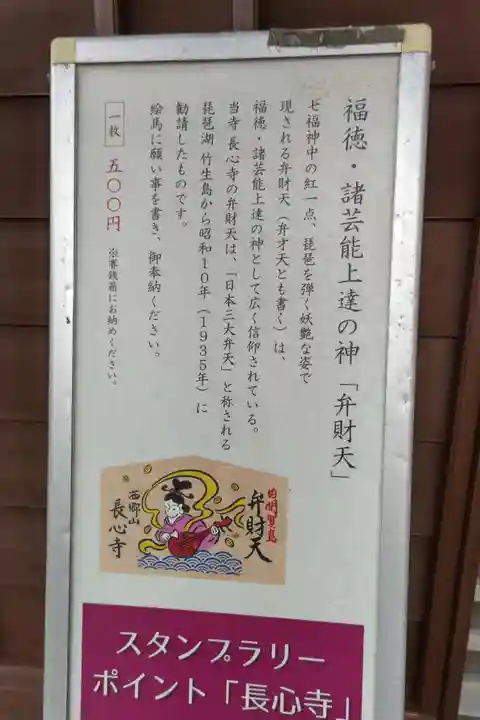 福徳・諸芸能上達の神「弁財天」
七福神中の紅一点、琵琶を弾く妖艶な姿で
現される弁財天（弁才天とも書く）は、
福徳・諸芸能上達の神として広く信仰されている。
当寺 長心寺の弁財天は、「日本三大弁天」と称される
琵琶湖 竹生島から昭和１０年（１９３５年）に
勧請したものです。
絵馬に願い事を書き、御奉納ください。
一枚 五〇〇円 ※賽銭箱にお納めください。
弁財天
西郷山
長心寺
スタンプラリー
ポイント「長心寺」